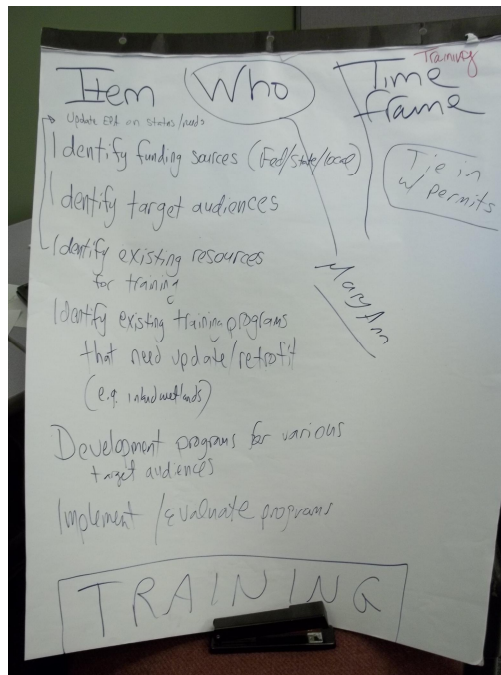 Training
Item Who Time
frame
Update EPA on status/needs
Identify funding sources (Fed/state/local)
Tie in
w/ permits
Identify target audiences
Identify existing resources
for training
MaryAnn
Identify existing training programs
that need update/retrofit
(e.g. inland wetlands)
Development programs for various
target audiences
Implement/evaluate programs
TRAINING